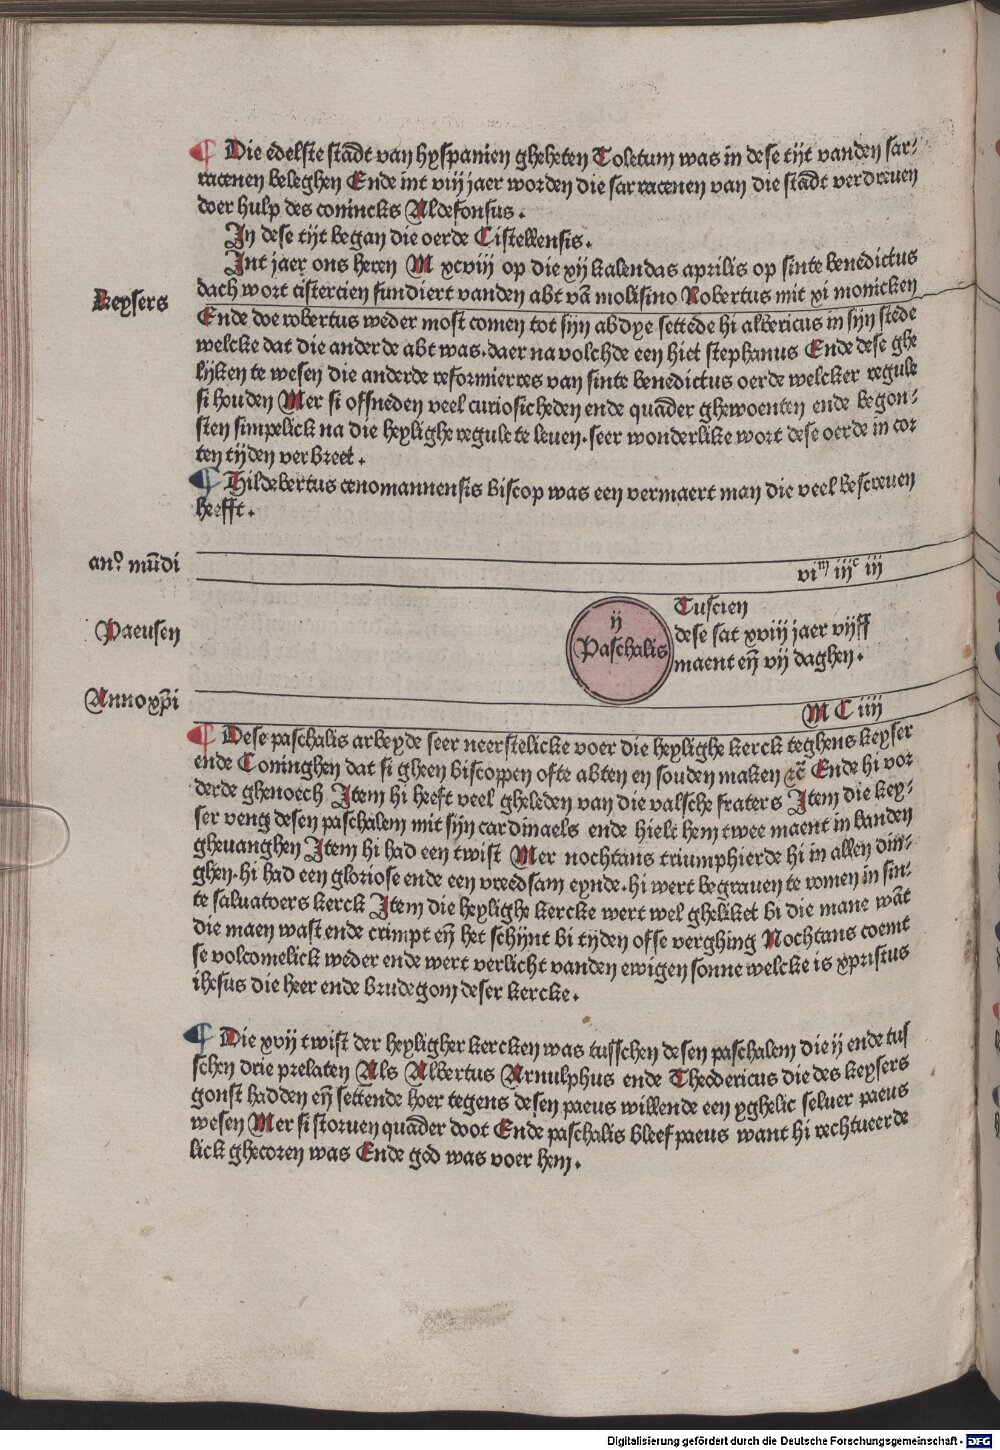 ¶ Die edelste stadt van hyspanien gheheten Toletum was in dese tijt vanden sar-
racenen beleghen Ende int viij jaer worden die sarracenen van die stadt verdreuen
doer hulp des conincks Aldefonsus.
In dese tijt began die oerde Cistellensis.
Int jaer ons heren M xcviij op die xij kalendas aprilis op sinte benedictus
keysers
dach wort cistercien fundiert vanden abt vā molisino Robertus mit xi monicken
Ende doe robertus weder most comen tot sijn abdye settede hi albericus in sijn stede
welcke dat die anderde abt was. daer na volchde een hiet stephanus Ende dese ghe
lijken te wesen die anderde reformierres van sinte benedictus oerde welcker regule
si houden Mer si ofsneden veel curiosicheden ende quader ghewoenten ende begon-
sten simpelick na die heylighe regule te leuen. seer wonderlike wort dese oerde in cor
ten tijden verbreet.
¶ Hildebertus cenomannensis biscop was een vermaert man die veel bescreuen
heefft.
anº mūdi
viᵐ iijᶜ iij
Paeusen
ij
Paschalis
Tuscien
dese sat xviij jaer vijff
maent eñ vij daghen.
Anno xp̄i
M C iiij
¶ Dese paschalis arbeyde seer neerstelicke voer die heylighe kerck teghens keyser
ende Coninghen dat si gheen biscoppen ofte abten en souden maken ⁊c̄ Ende hi vor
derde ghenoech Item hi heeft veel gheleden van die valsche fraters Item die key-
ser veng desen paschalem mit sijn cardinaels ende hielt hem twee maent in banden
gheuanghen Item hi had een twist Mer nochtans triumphierde hi in allen din-
ghen. hi had een gloriose ende een vreedsam eynde. hi wert begrauen te romen in sin-
te saluatoers kerck Item die heylighe kercke wert wel gheliket bi die mane wāt
die maen wast ende crimpt eñ het schijnt bi tijden ofse verghing Nochtans coemt
se volcomelick weder ende wert verlicht vanden ewigen sonne welcke is xpristus
ihesus die heer ende brudegom deser kercke.
¶ Die xvij twist der heyligher kercken was tusschen desen paschalem die ij ende tus
schen drie prelaten Als Albertus Arnulphus ende Theodericus die des keysers
gonst hadden eñ settende hoer tegens desen paeus willende een yghelic seluer paeus
wesen Mer si storuen quader doot Ende paschalis bleef paeus want hi rechtueerde
lick ghecoren was Ende god was voer hem.
Digitalisierung gefördert durch die Deutsche Forschungsgemeinschaft - DFG